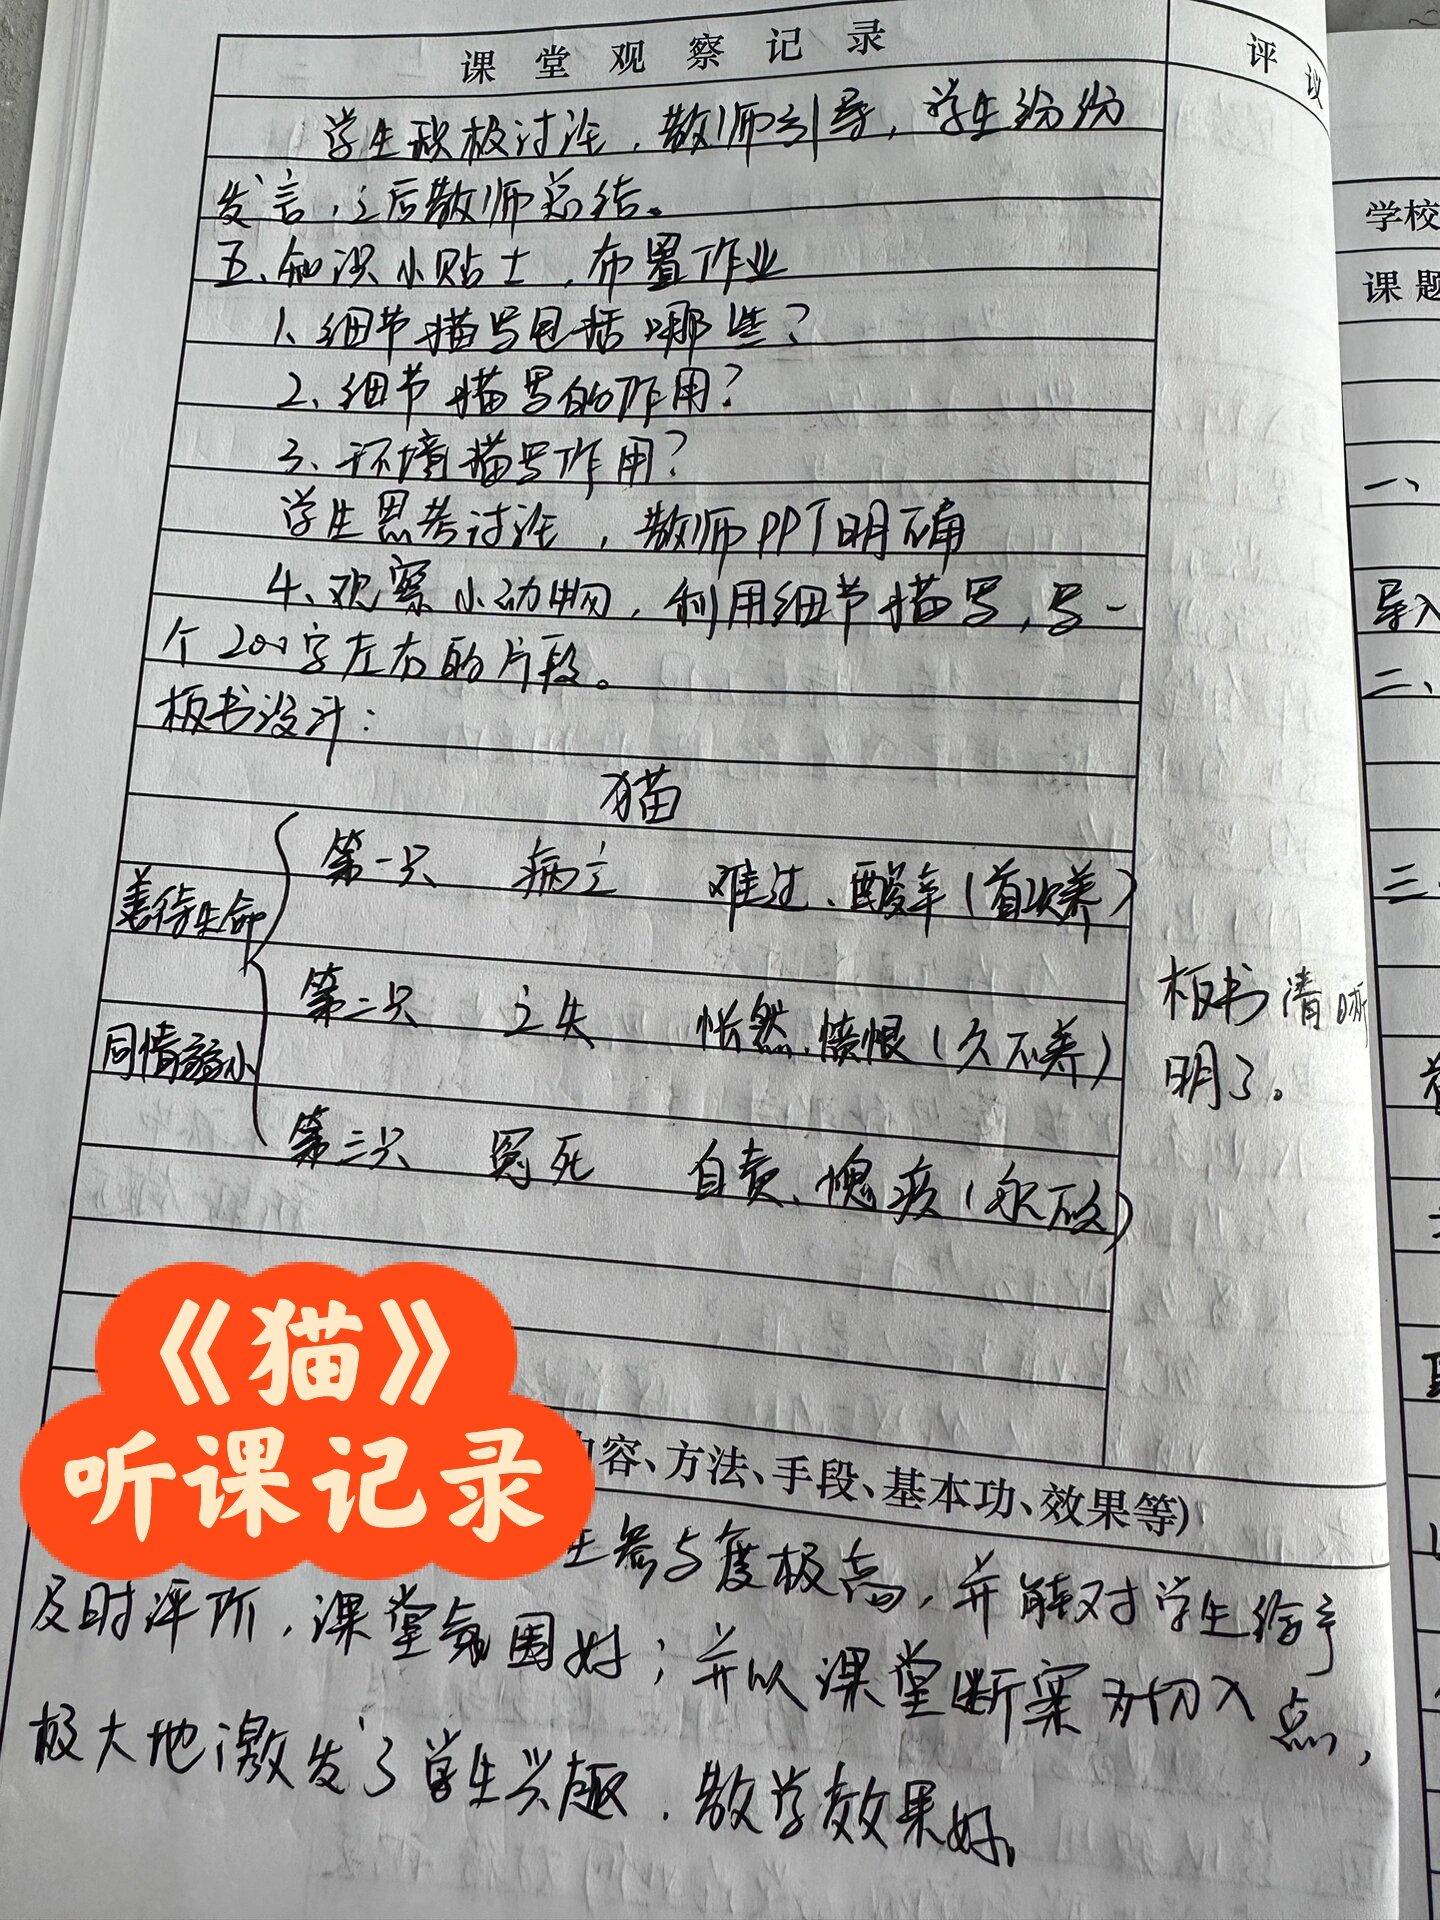 课堂观察记录
评议
学生积极讨论，教师引导，学生纷纷
发言，之后教师总结。
五、知识小贴士，布置作业
1、细节描写包括哪些？
2、细节描写的作用？
3、环境描写作用？
学生思考讨论，教师PPT明确
4、观察小动物，利用细节描写，写一
个200字左右的片段。
板书设计：
猫
善待生命
同情弱小
第一只 病亡 难过、酸辛（首次养）
第二只 亡失 怅然、愤恨（久不养）
第三只 冤死 自责、愧疚（永不养）
板书清晰
明了。
《猫》
听课记录
内容、方法、手段、基本功、效果等)
生参与度极高，并能对学生给予
及时评价，课堂氛围好；并以课堂断案为切入点，
极大地激发了学生兴趣，教学效果好。
学校
课题
一、
导入
二、
三、